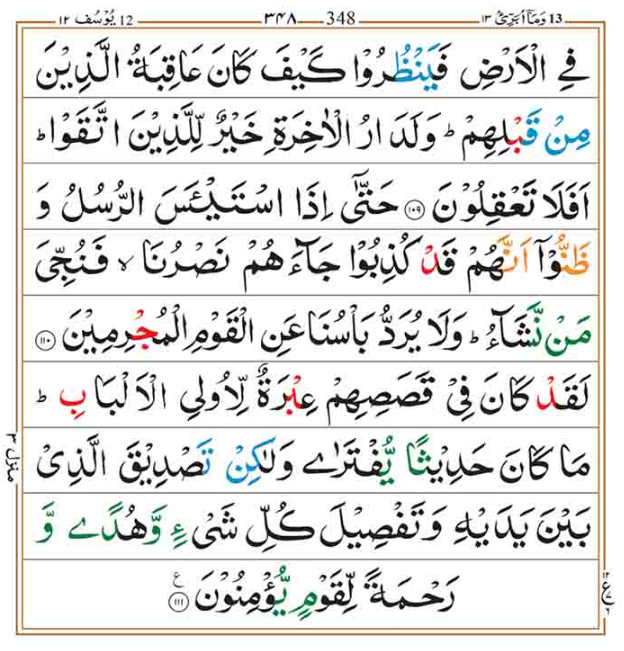 12 يُوْسُف ١٢ ٣٤٨ 348 13 وَمَآ اُبَرِّئُ ١٣
فِي الْاَرْضِ فَيَنْظُرُوْا كَيْفَ كَانَ عَاقِبَةُ الَّذِيْنَ
مِنْ قَبْلِهِمْ ؕ وَلَدَارُ الْاٰخِرَةِ خَيْرٌ لِّلَّذِيْنَ اتَّقَوْا ؕ
اَفَلَا تَعْقِلُوْنَ ۝۱۰۹ حَتّٰۤى اِذَا اسْتَيْـَٔسَ الرُّسُلُ وَ
ظَنُّوْۤا اَنَّهُمْ قَدْ كُذِبُوْا جَآءَهُمْ نَصْرُنَا ۙ فَنُجِّىَ
مَنْ نَّشَآءُ ؕ وَلَا يُرَدُّ بَاْسُنَا عَنِ الْقَوْمِ الْمُجْرِمِيْنَ ۝۱۱۰
لَقَدْ كَانَ فِيْ قَصَصِهِمْ عِبْرَةٌ لِّاُولِي الْاَلْبَابِ ؕ
مَا كَانَ حَدِيْثًا يُّفْتَرٰى وَلٰكِنْ تَصْدِيْقَ الَّذِيْ
بَيْنَ يَدَيْهِ وَتَفْصِيْلَ كُلِّ شَيْءٍ وَّهُدًى وَّ
رَحْمَةً لِّقَوْمٍ يُّؤْمِنُوْنَ ۝۱۱۱ ع
منزل ٣